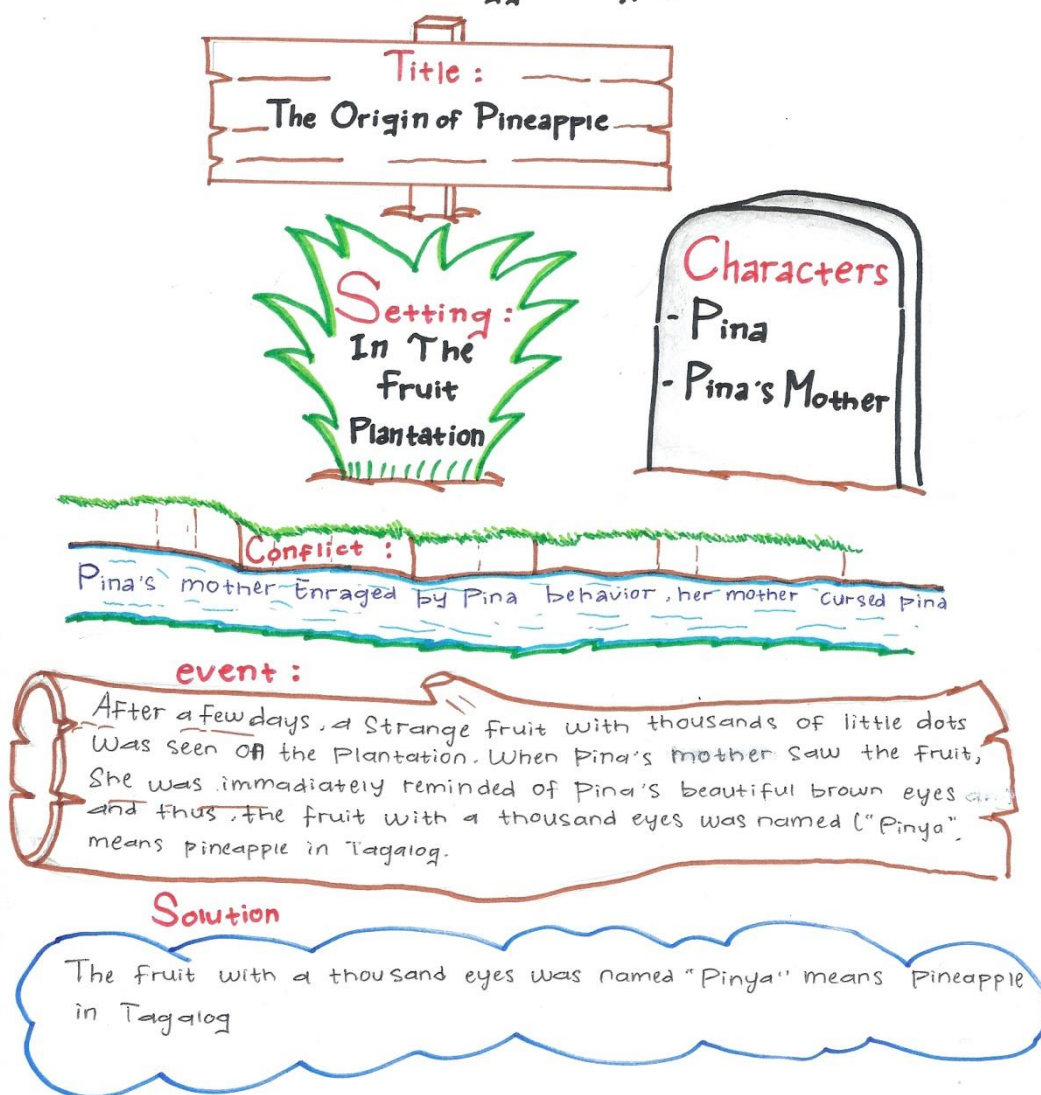 Title :
The Origin of Pineapple
Setting :
In The
Fruit
Plantation
Characters
- Pina
- Pina's Mother
Conflict :
Pina's mother Enraged by Pina behavior, her mother cursed pina
event :
After a few days, a Strange fruit with thousands of little dots
was seen on the Plantation. When Pina's mother saw the fruit,
She was immadiately reminded of Pina's beautiful brown eyes
and thus, the fruit with a thousand eyes was named ("Pinya",
means pineapple in Tagalog.
Solution
The fruit with a thousand eyes was named "Pinya" means Pineapple
in Tagalog